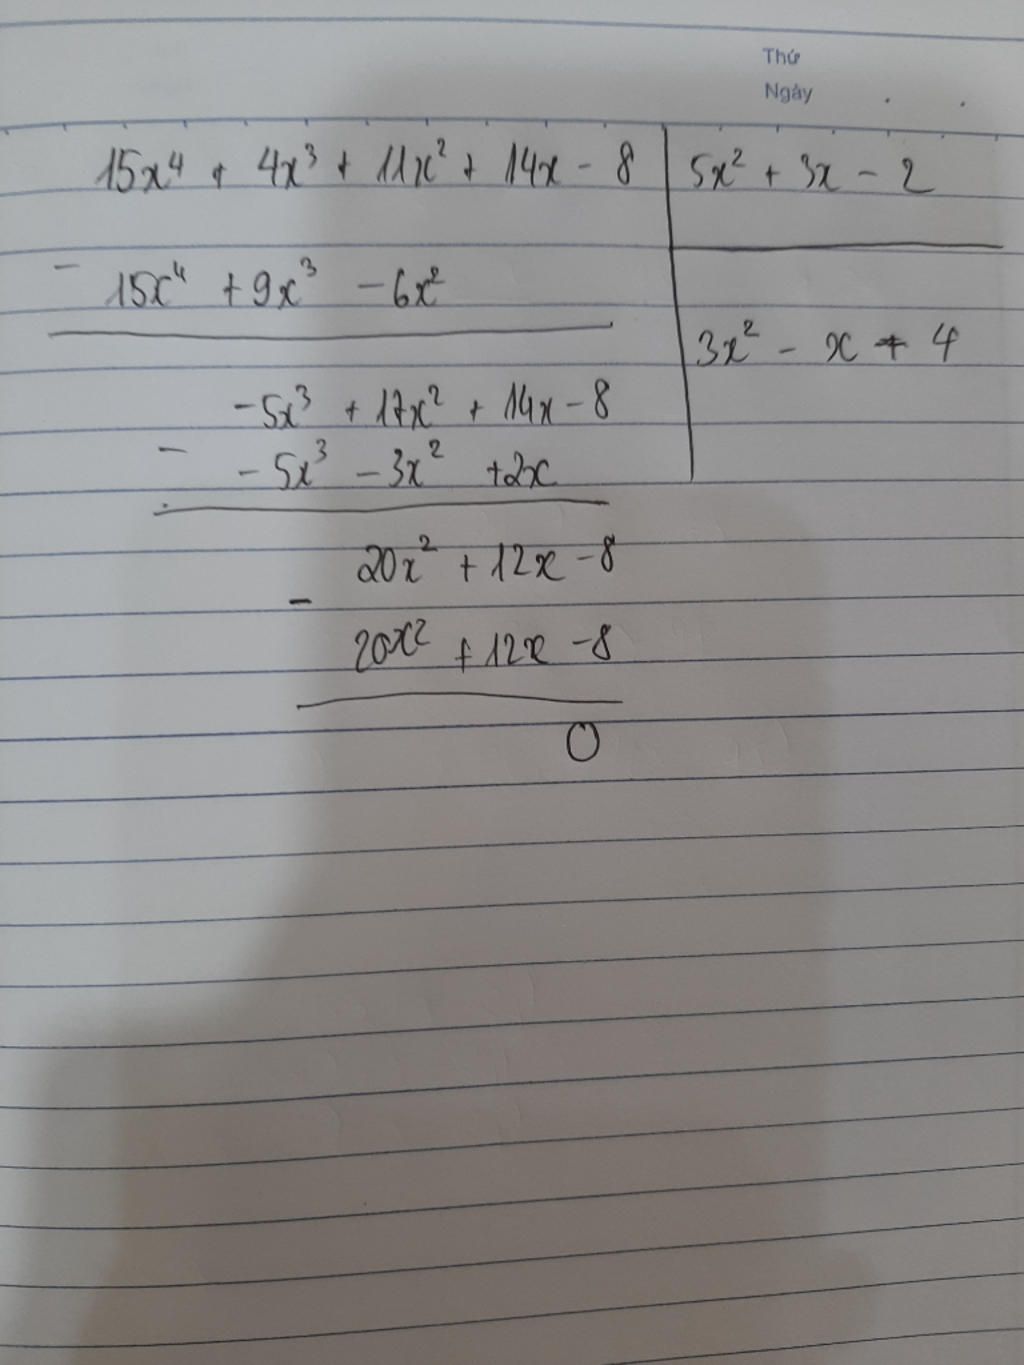 Thứ
Ngày . .
15x⁴ + 4x³ + 11x² + 14x - 8 | 5x² + 3x - 2
- 15x⁴ + 9x³ - 6x²
3x² - x + 4
-5x³ + 17x² + 14x - 8
- -5x³ - 3x² + 2x
20x² + 12x - 8
-
20x² + 12x - 8
0